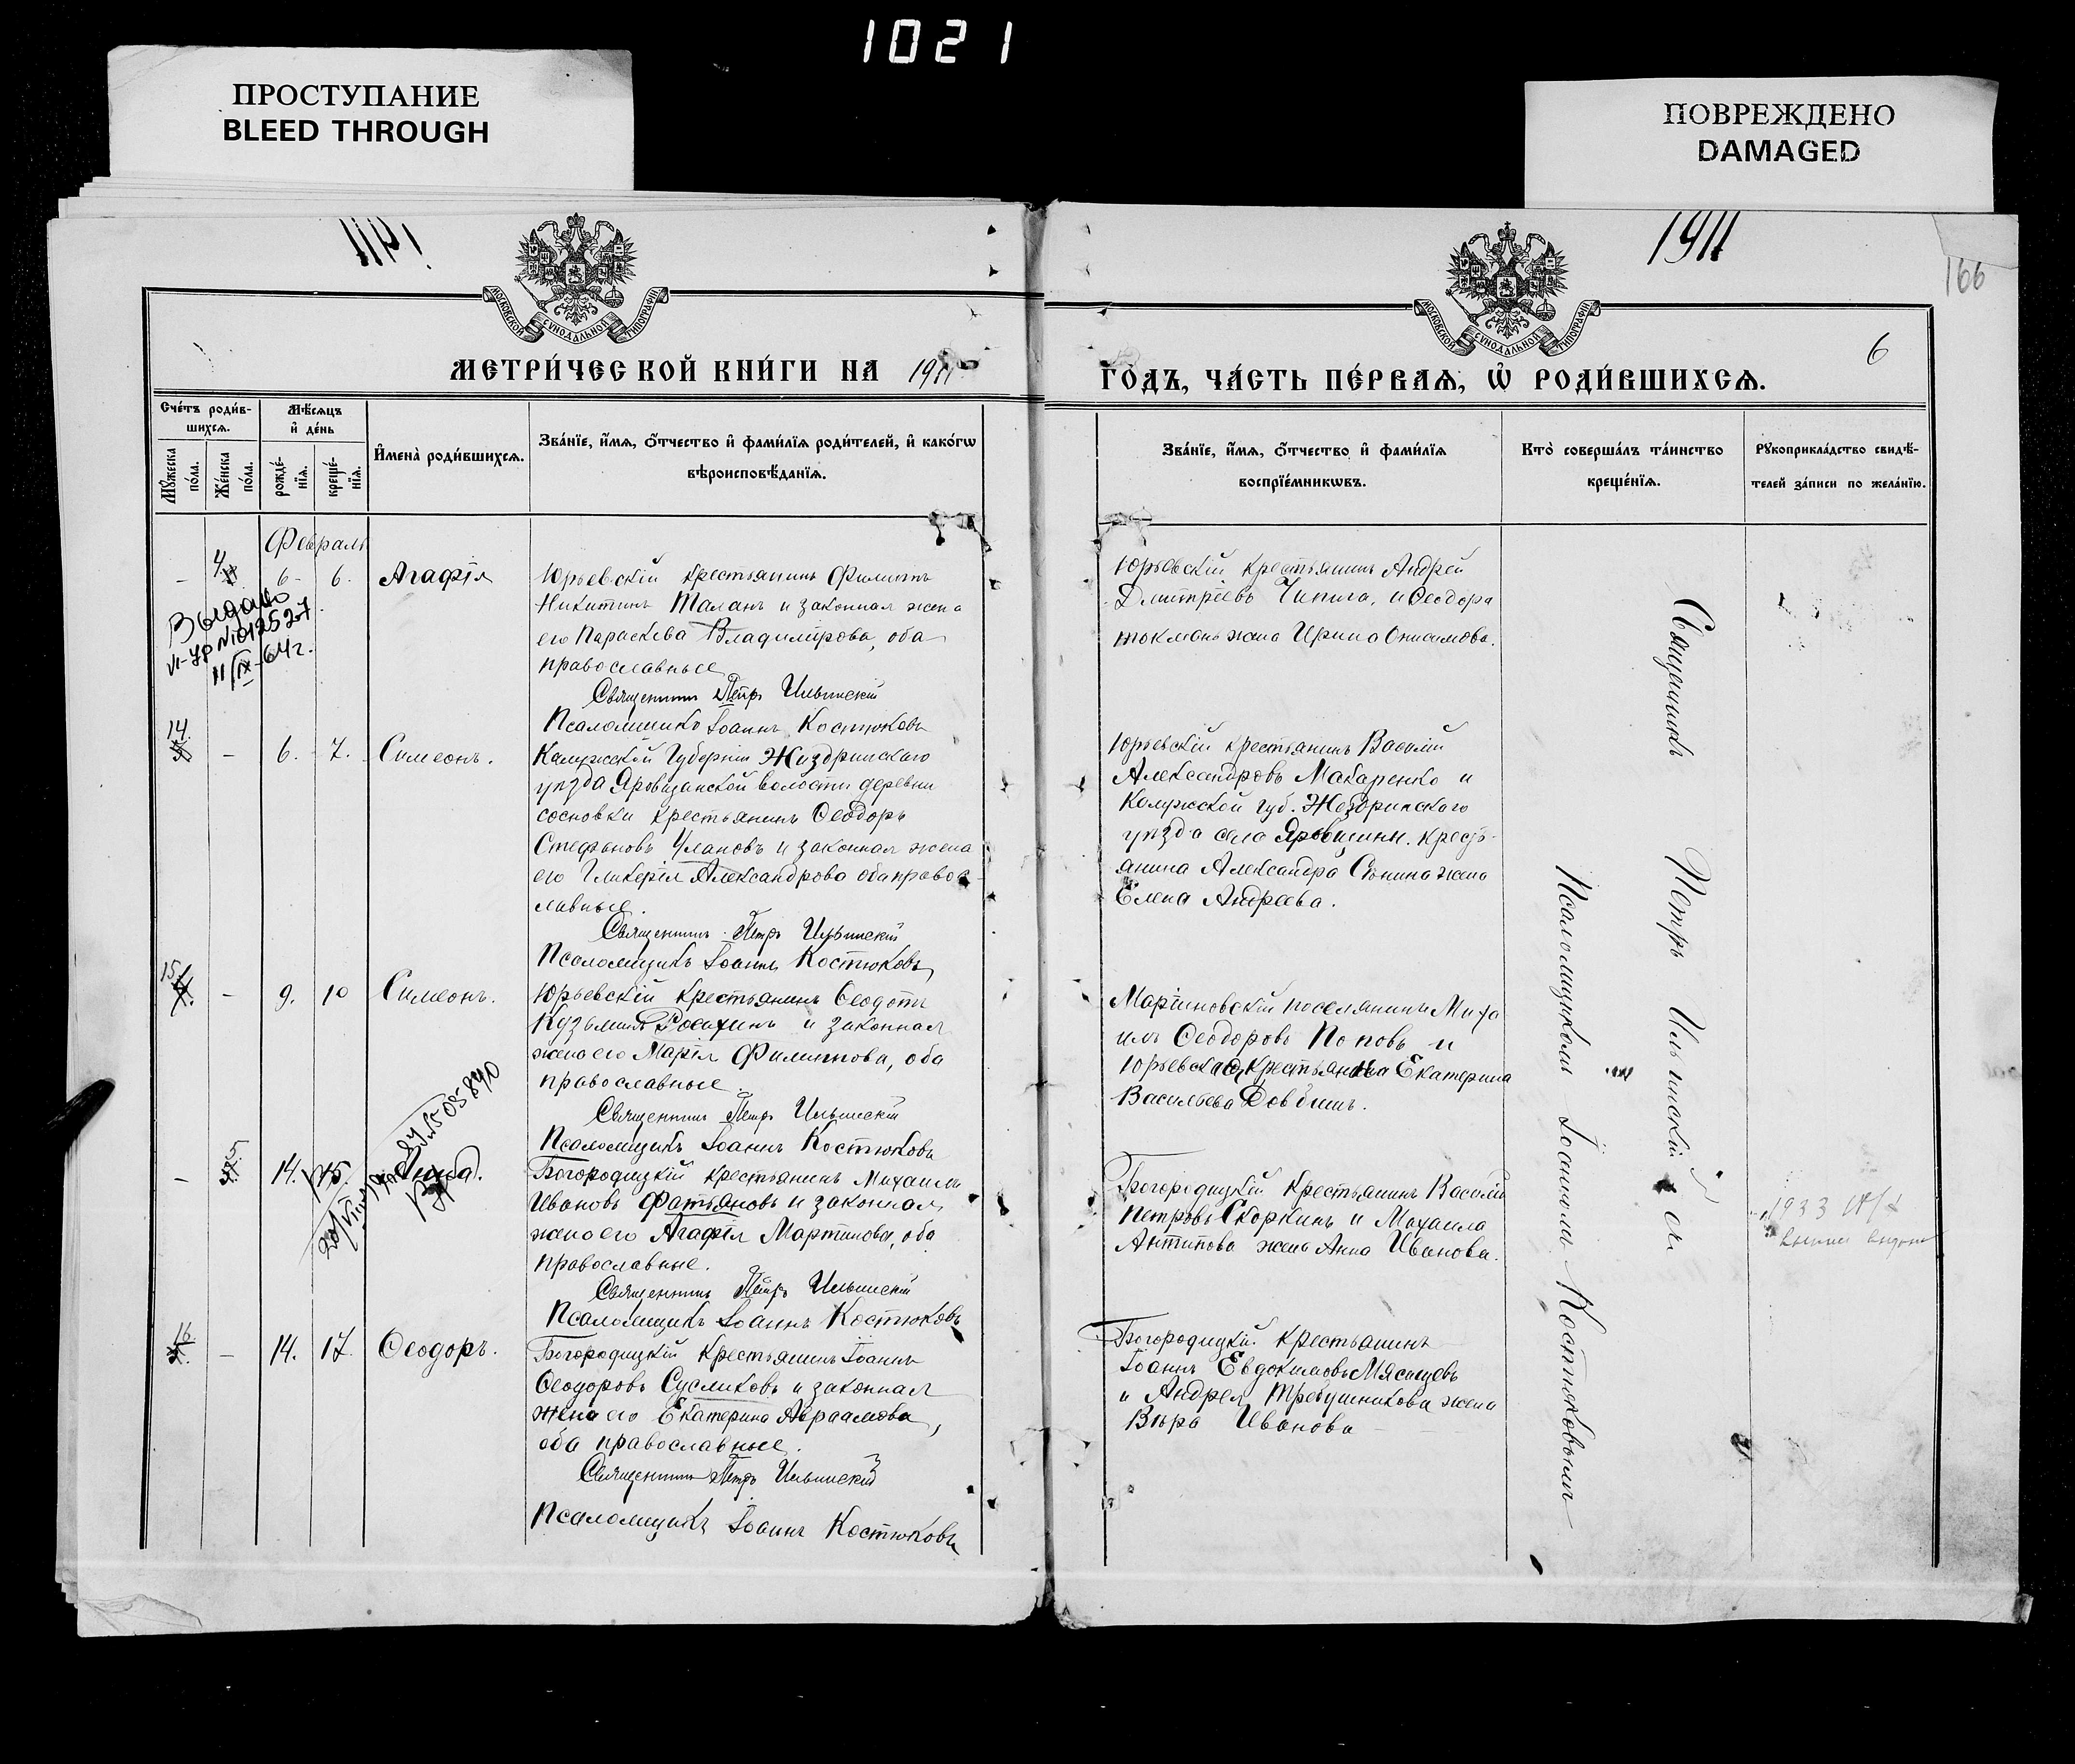 1021
ПРОСТУПАНИЕ
BLEED THROUGH
ПОВРЕЖДЕНО
DAMAGED
1911
166
6
МОСКОВСКОЙ СѴНОДАЛЬНОЙ ТИПОГРАФІИ
МОСКОВСКОЙ СѴНОДАЛЬНОЙ ТИПОГРАФІИ
МЕТРИ́ЧЕСКОЙ КНИ́ГИ НА 1911
ГО́ДЪ, ЧА́СТЬ ПЕ́РВАѦ, Ѡ РОДИ́ВШИХСѦ.
Сче́тъ роди́в-
шихсѧ.
Мѣ́сѧцъ
и҆ де́нь
Мꙋ́жеска по́ла.
Же́нска по́ла.
рожде́-
нїѧ.
креще́-
нїѧ.
И҆мена̀ роди́вшихсѧ.
Зва́нїе, и҆́мѧ, ѻ҆́тчество и҆ фами́лїѧ роди́телей, и҆ како́гѡ
вѣроисповѣ́данїѧ.
Зва́нїе, и҆́мѧ, ѻ҆́тчество и҆ фами́лїѧ
воспрїе́мникѡвъ.
Кто̀ соверша́лъ та́инство
креще́нїѧ.
Рꙋкоприкла́дство свидѣ́-
телей за́писи по жела́нїю.
Февраль
- 4. 6- 6. Агафія
Юрьевскій крестьянинъ Филиппъ
Никитинъ Таланъ и законная жена
его Параскева Владимірова, оба
православные
Священникъ Петръ Ильинскій
Псаломщикъ Іоаннъ Костюковъ
Юрьевскій крестьянинъ Андрей
Дмитріевъ Чипига, и Ѳеодора
жена Ирина Онисимова.
Выдано
11/IX-64г.
14. - 6. 7. Симеонъ.
Калужской Губерніи Жиздринскаго
уѣзда волости деревни
сосновки крестьянинъ Ѳеодоръ
Стефановъ Улановъ и законная жена
его Гликерія Александрова оба правос-
лавные.
Священникъ Петръ Ильинскій
Псаломщикъ Іоаннъ Костюковъ
Юрьевскій крестьянинъ Василій
Александровъ Макаренко и
Калужской губ. Жиздринского
уѣзда села кресть-
янина Александра жена
Елена Андреева.
15. - 9. 10 Симеонъ.
Юрьевскій крестьянинъ Ѳеодотъ
Кузьминъ и законная
жена его Марія Филиппова, оба
православные.
Священникъ Петръ Ильинскій
Псаломщикъ Іоаннъ Костюковъ
поселянинъ Миха
илъ Ѳеодоровъ Поповъ и
Юрьевская крестьянка Екатерина
Васильева Довбишъ.
- 5. 14. 15. Анна.
Богородицкій крестьянинъ Михаилъ
Ивановъ Фатьяновъ и законная
жена его Агафія Мартинова, оба
православные.
Священникъ Петръ Ильинскій
Псаломщикъ Іоаннъ Костюковъ
Богородицкій крестьянинъ Василій
Петровъ Скоркинъ и Михаила
Антипова жена Анна Иванова.
1933
16. - 14. 17. Ѳеодоръ.
Богородицкій крестьянинъ Іоаннъ
Ѳеодоровъ Сусликовъ и законная
жена его Екатерина Авраамова,
оба православные.
Священникъ Петръ Ильинскій
Псаломщикъ Іоаннъ Костюковъ
Богородицкій крестьянинъ
Іоаннъ Евдокимовъ Мясищевъ
и Андрея Требушникова жена
Вѣра Иванова
Священникъ Петръ Ильинскій съ
Псаломщикомъ Іоанномъ Костюковымъ